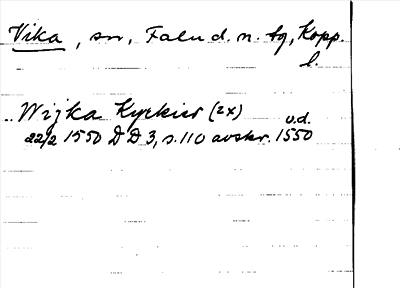 Vika, sn, Falu d. n. tg, Kopp.
l.
.. Wijka Kyrkier (2x) u.d.
22/2 1550 DD 3, s. 110 avskr. 1550